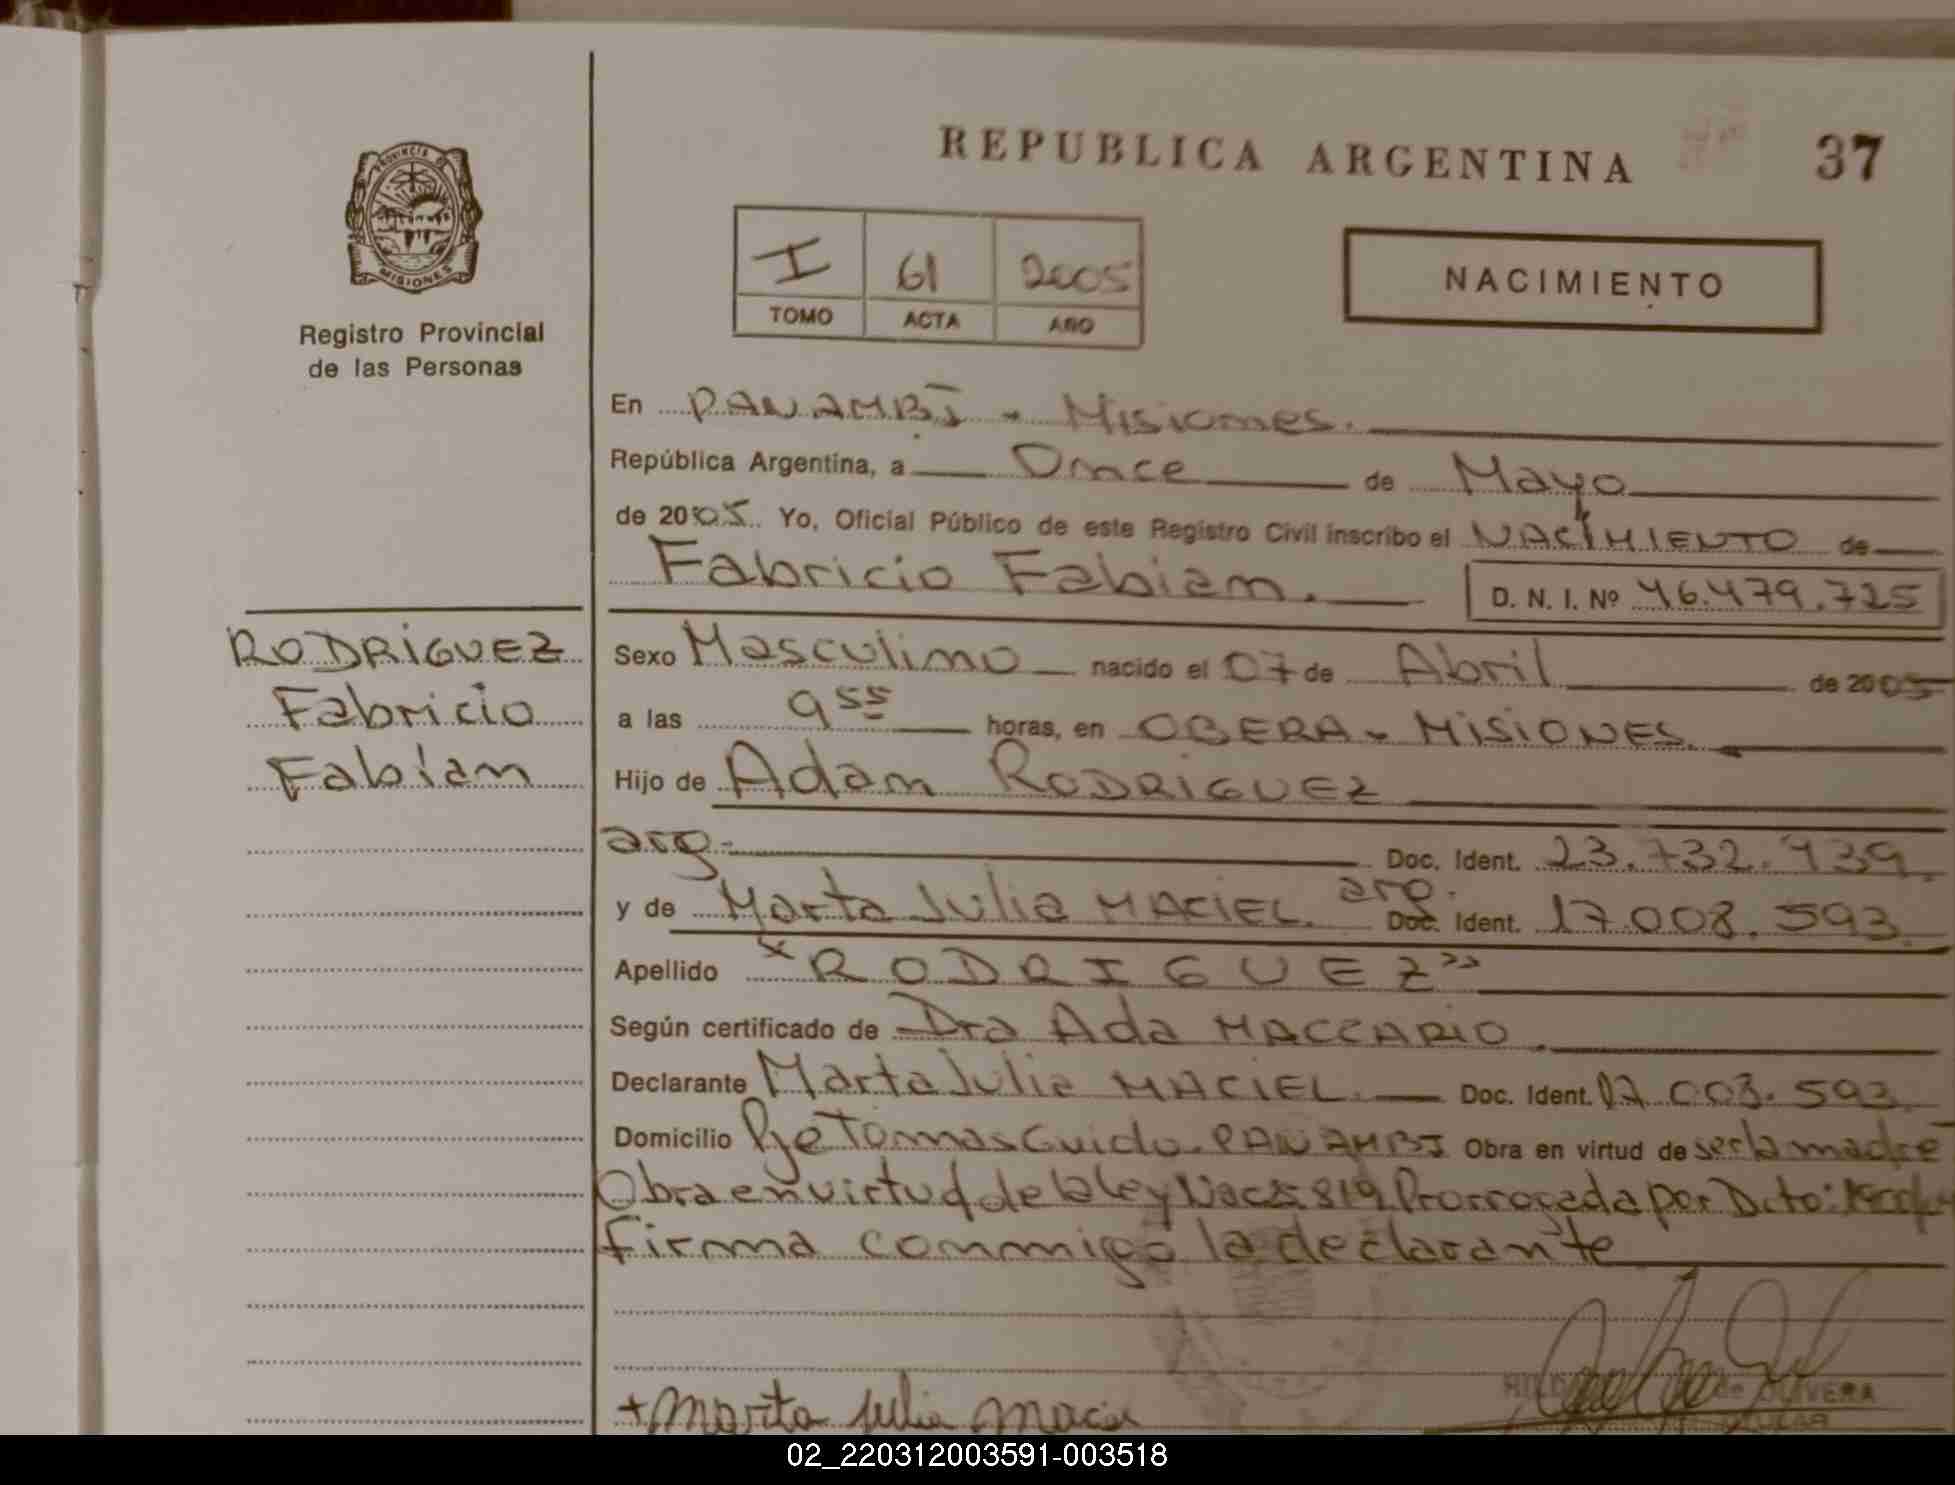 REPUBLICA ARGENTINA 37
PROVINCIA DE MISIONES
Registro Provincial
de las Personas
I 61 2005
TOMO ACTA AÑO
NACIMIENTO
En PANAMBI - Misiones.
República Argentina, a Once de Mayo
de 2005. Yo, Oficial Público de este Registro Civil inscribo el NACIMIENTO de
Fabricio Fabian. D. N. I. Nº 46.479.725
RODRIGUEZ
Fabricio
Fabián
Sexo Masculino nacido el 07 de Abril de 2005
a las 9 55 horas, en OBERA - MISIONES.
Hijo de Adam RODRIGUEZ
arg. Doc. Ident. 23.732.939.
y de Marta Julia MACIEL. arg. Doc. Ident. 17.008.593.
Apellido "RODRIGUEZ"
Según certificado de Dra Ada MACCARIO.
Declarante Marta Julia MACIEL. Doc. Ident. 17.008.593.
Domicilio Pje Tomas Guido - PANAMBI Obra en virtud de ser la madre
Obra en virtud de la ley Nac 25.819 Prorrogada por Dcto:
Firma conmigo la declarante
+ Marta Julia Maciel
de OLIVERA
02_220312003591-003518